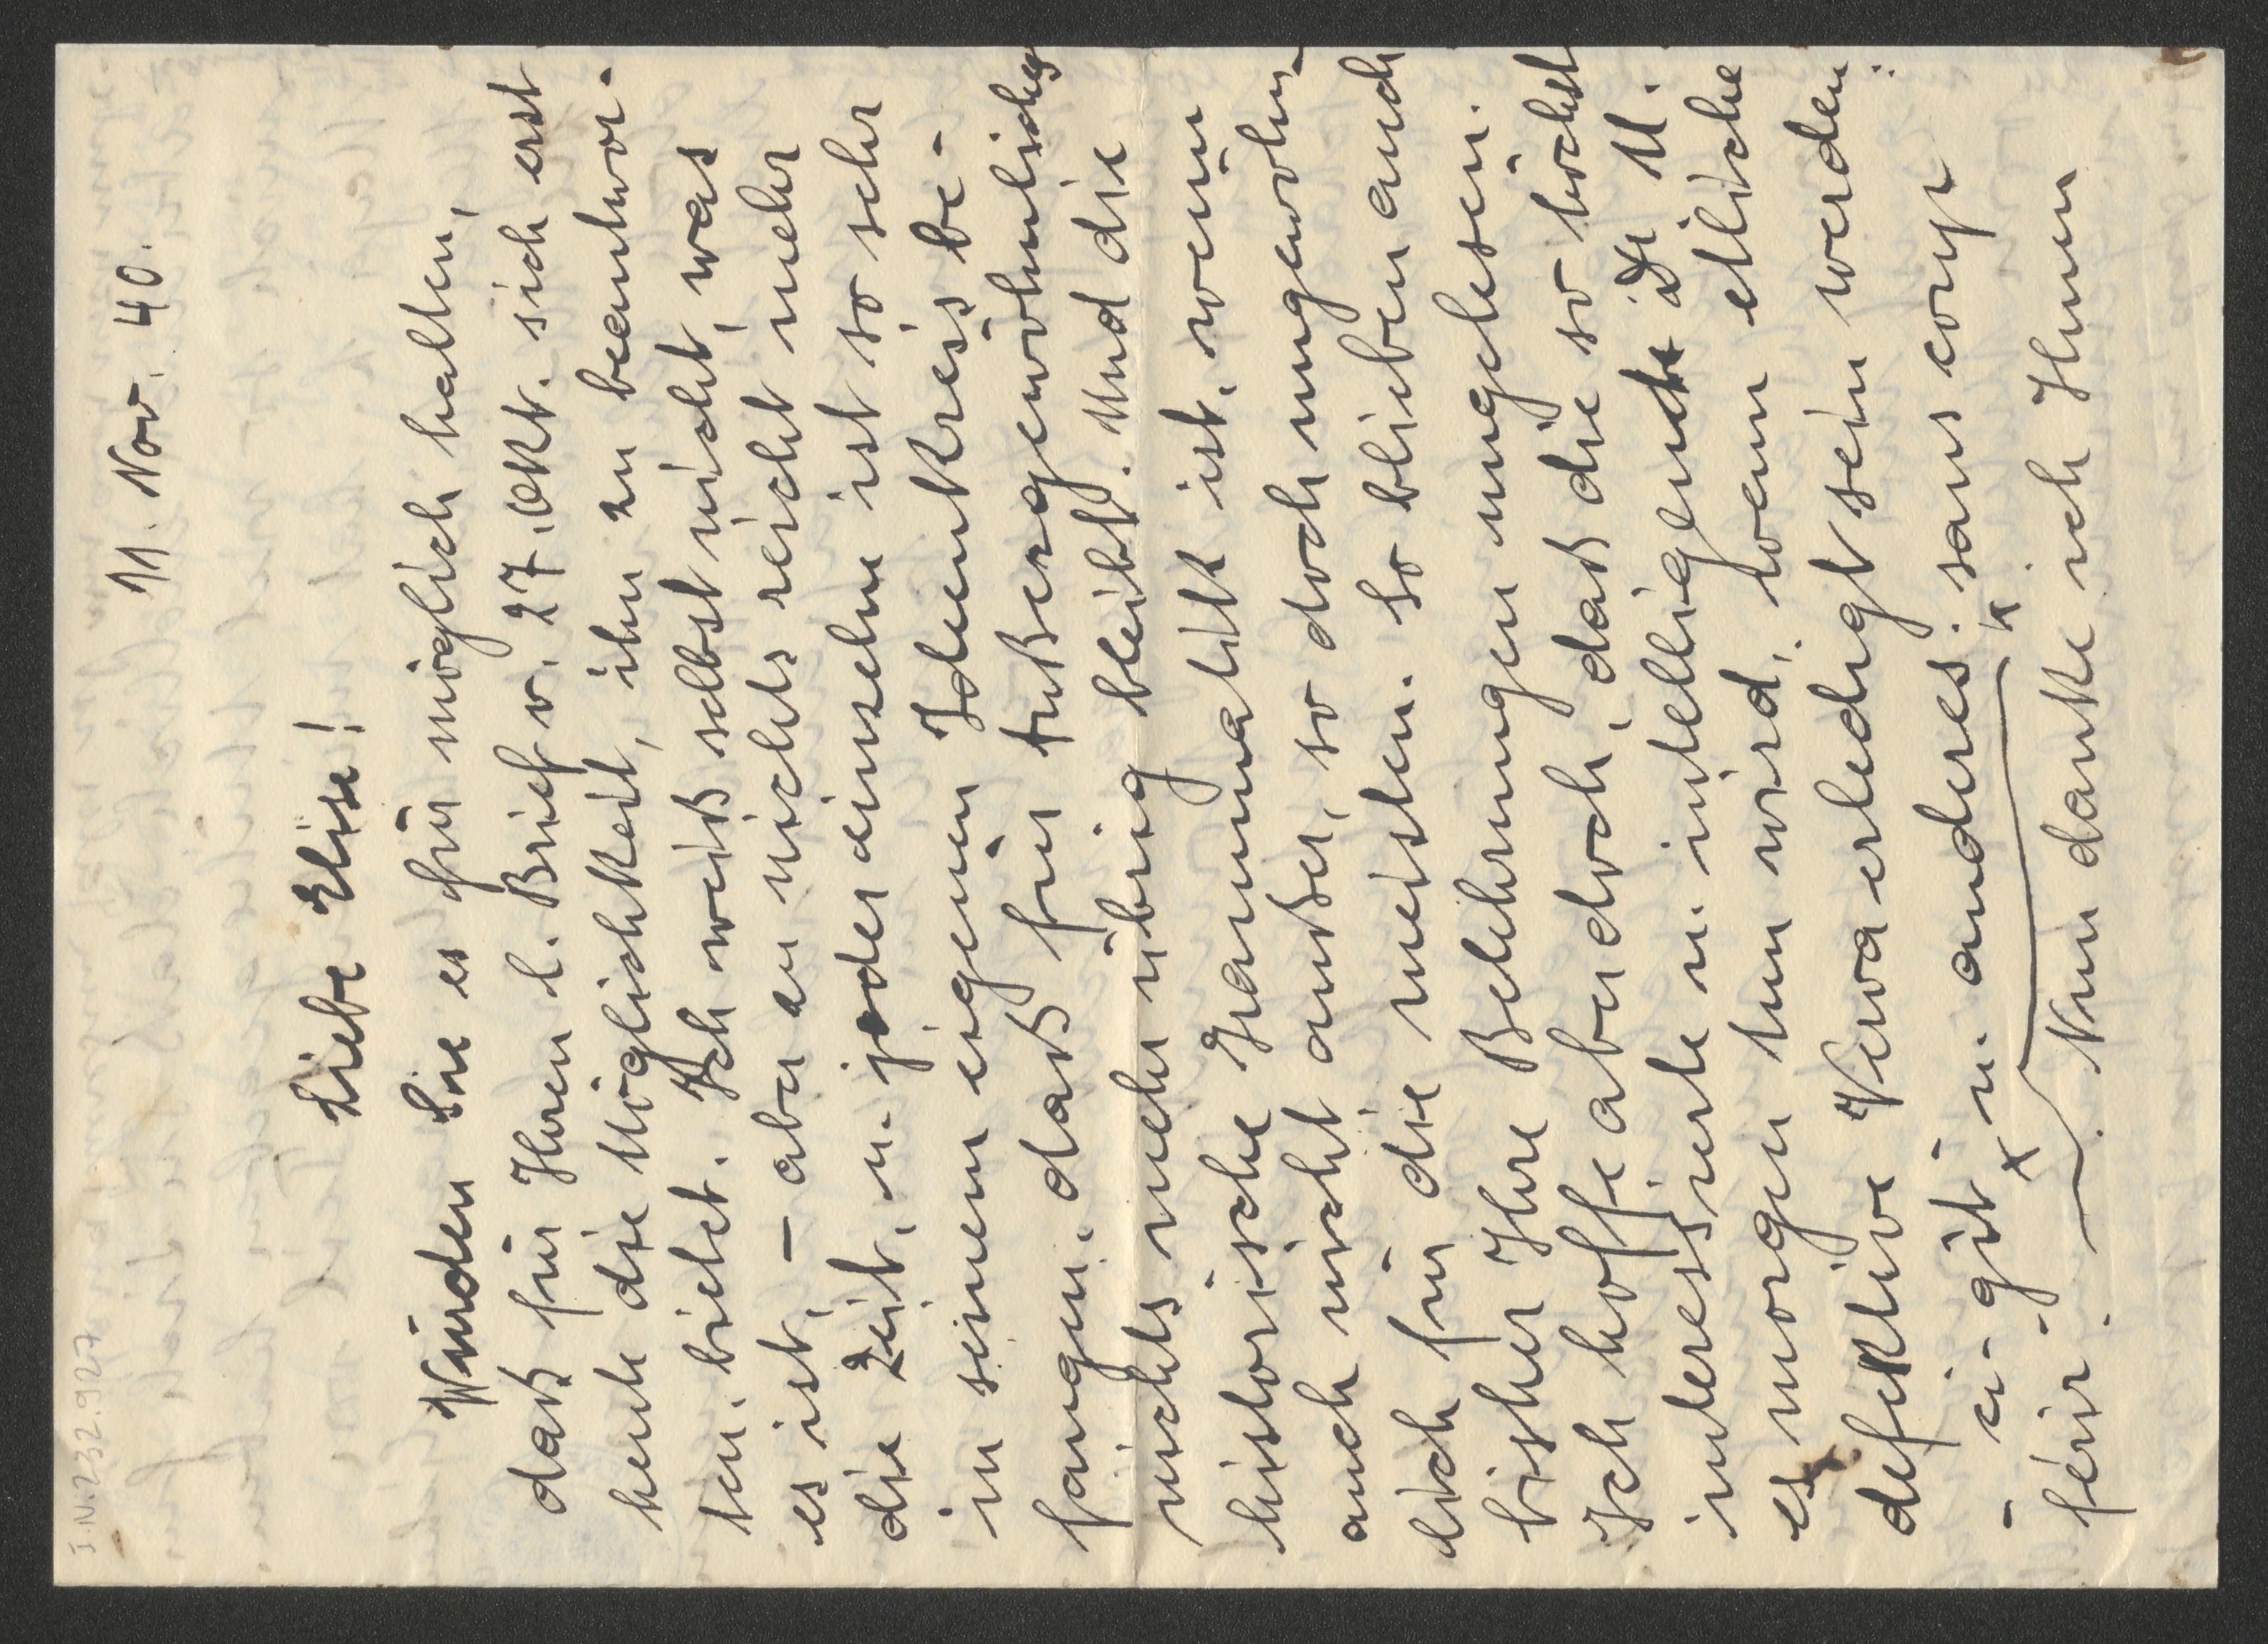 I.N. 232.927
11. Nov. 40.
Liebe Elise!
Würden Sie es für möglich halten,
dass für Ihren l. Brief v. 27. Okt. sich erst
heute die Möglichkeit, ihn zu beantwor-
ten, bietet. Ich weiß selbst nicht, was
es ist, – aber es nichts reicht mehr
die Zeit, u. jeder einzelne ist so sehr
in seinem eigenen Ideenkreis be-
fangen, daß für Außergewöhnliches
nichts mehr übrig bleibt. Und die
historische Grammatik ist, wenn
auch nicht außer, so doch ungewöhn-
lich für die meisten. So blieben auch
bisher Ihre Belehrungen ungelesen.
Ich hoffe aber doch, dass die so höchst
interessierte u. intelligente Di M.
es morgen tun wird, wenn etliche
defektive Verva erledigt sein werden:
– ci-gît u. anderes: sans coup
férir. Nun danke ich Ihnen